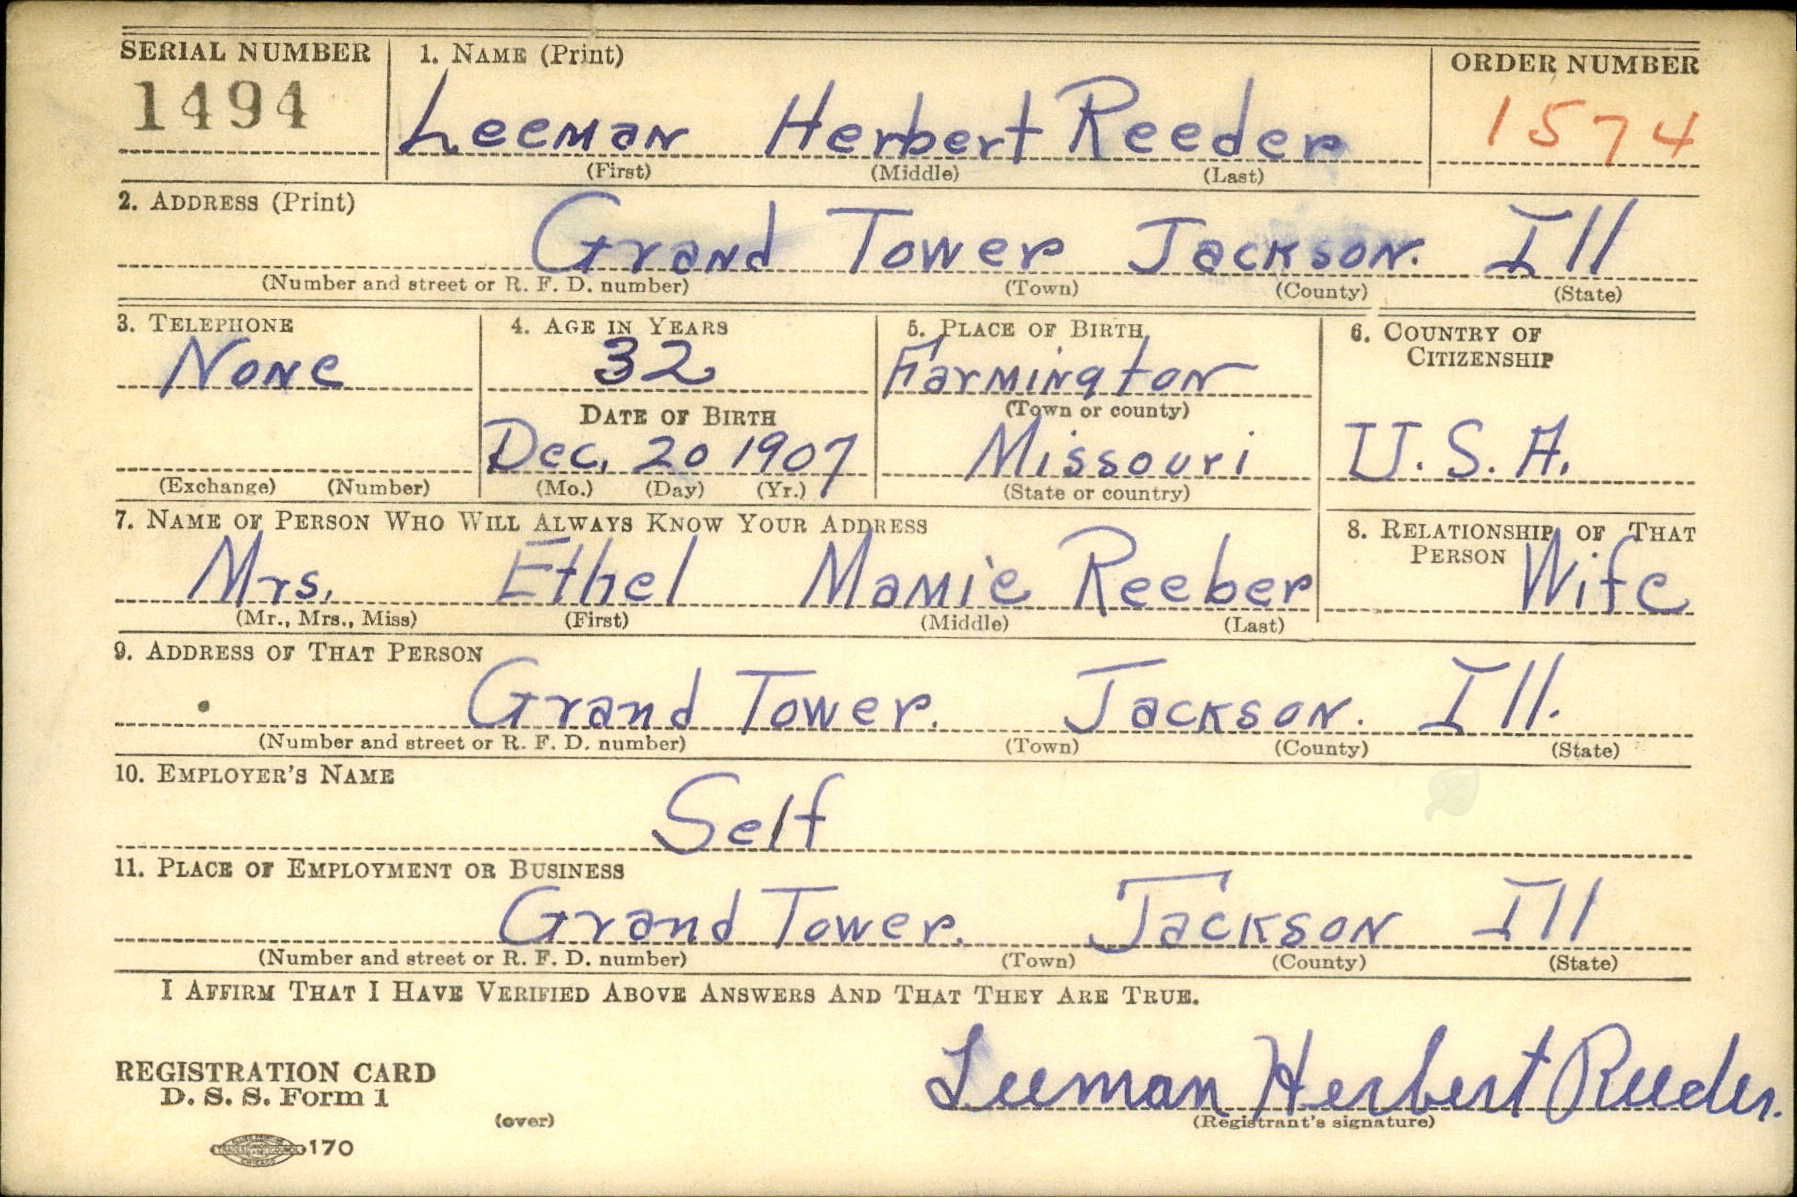 SERIAL NUMBER 1. NAME (Print) ORDER NUMBER
1494 Leeman Herbert Reeder 1574
(First) (Middle) (Last)
2. ADDRESS (Print)
Grand Tower Jackson. Ill
(Number and street or R. F. D. number) (Town) (County) (State)
3. TELEPHONE 4. AGE IN YEARS 5. PLACE OF BIRTH 6. COUNTRY OF
CITIZENSHIP
None 32 Farmington
DATE OF BIRTH (Town or county)
Dec. 20 1907 Missouri U.S.A.
(Exchange) (Number) (Mo.) (Day) (Yr.) (State or country)
7. NAME OF PERSON WHO WILL ALWAYS KNOW YOUR ADDRESS 8. RELATIONSHIP OF THAT
PERSON
Mrs. Ethel Mamie Reeber Wife
(Mr., Mrs., Miss) (First) (Middle) (Last)
9. ADDRESS OF THAT PERSON
Grand Tower. Jackson. Ill.
(Number and street or R. F. D. number) (Town) (County) (State)
10. EMPLOYER'S NAME
Self
11. PLACE OF EMPLOYMENT OR BUSINESS
Grand Tower. Jackson Ill
(Number and street or R. F. D. number) (Town) (County) (State)
I AFFIRM THAT I HAVE VERIFIED ABOVE ANSWERS AND THAT THEY ARE TRUE.
Leeman Herbert Reeder.
(Registrant's signature)
REGISTRATION CARD
D. S. S. Form 1
(over)
170